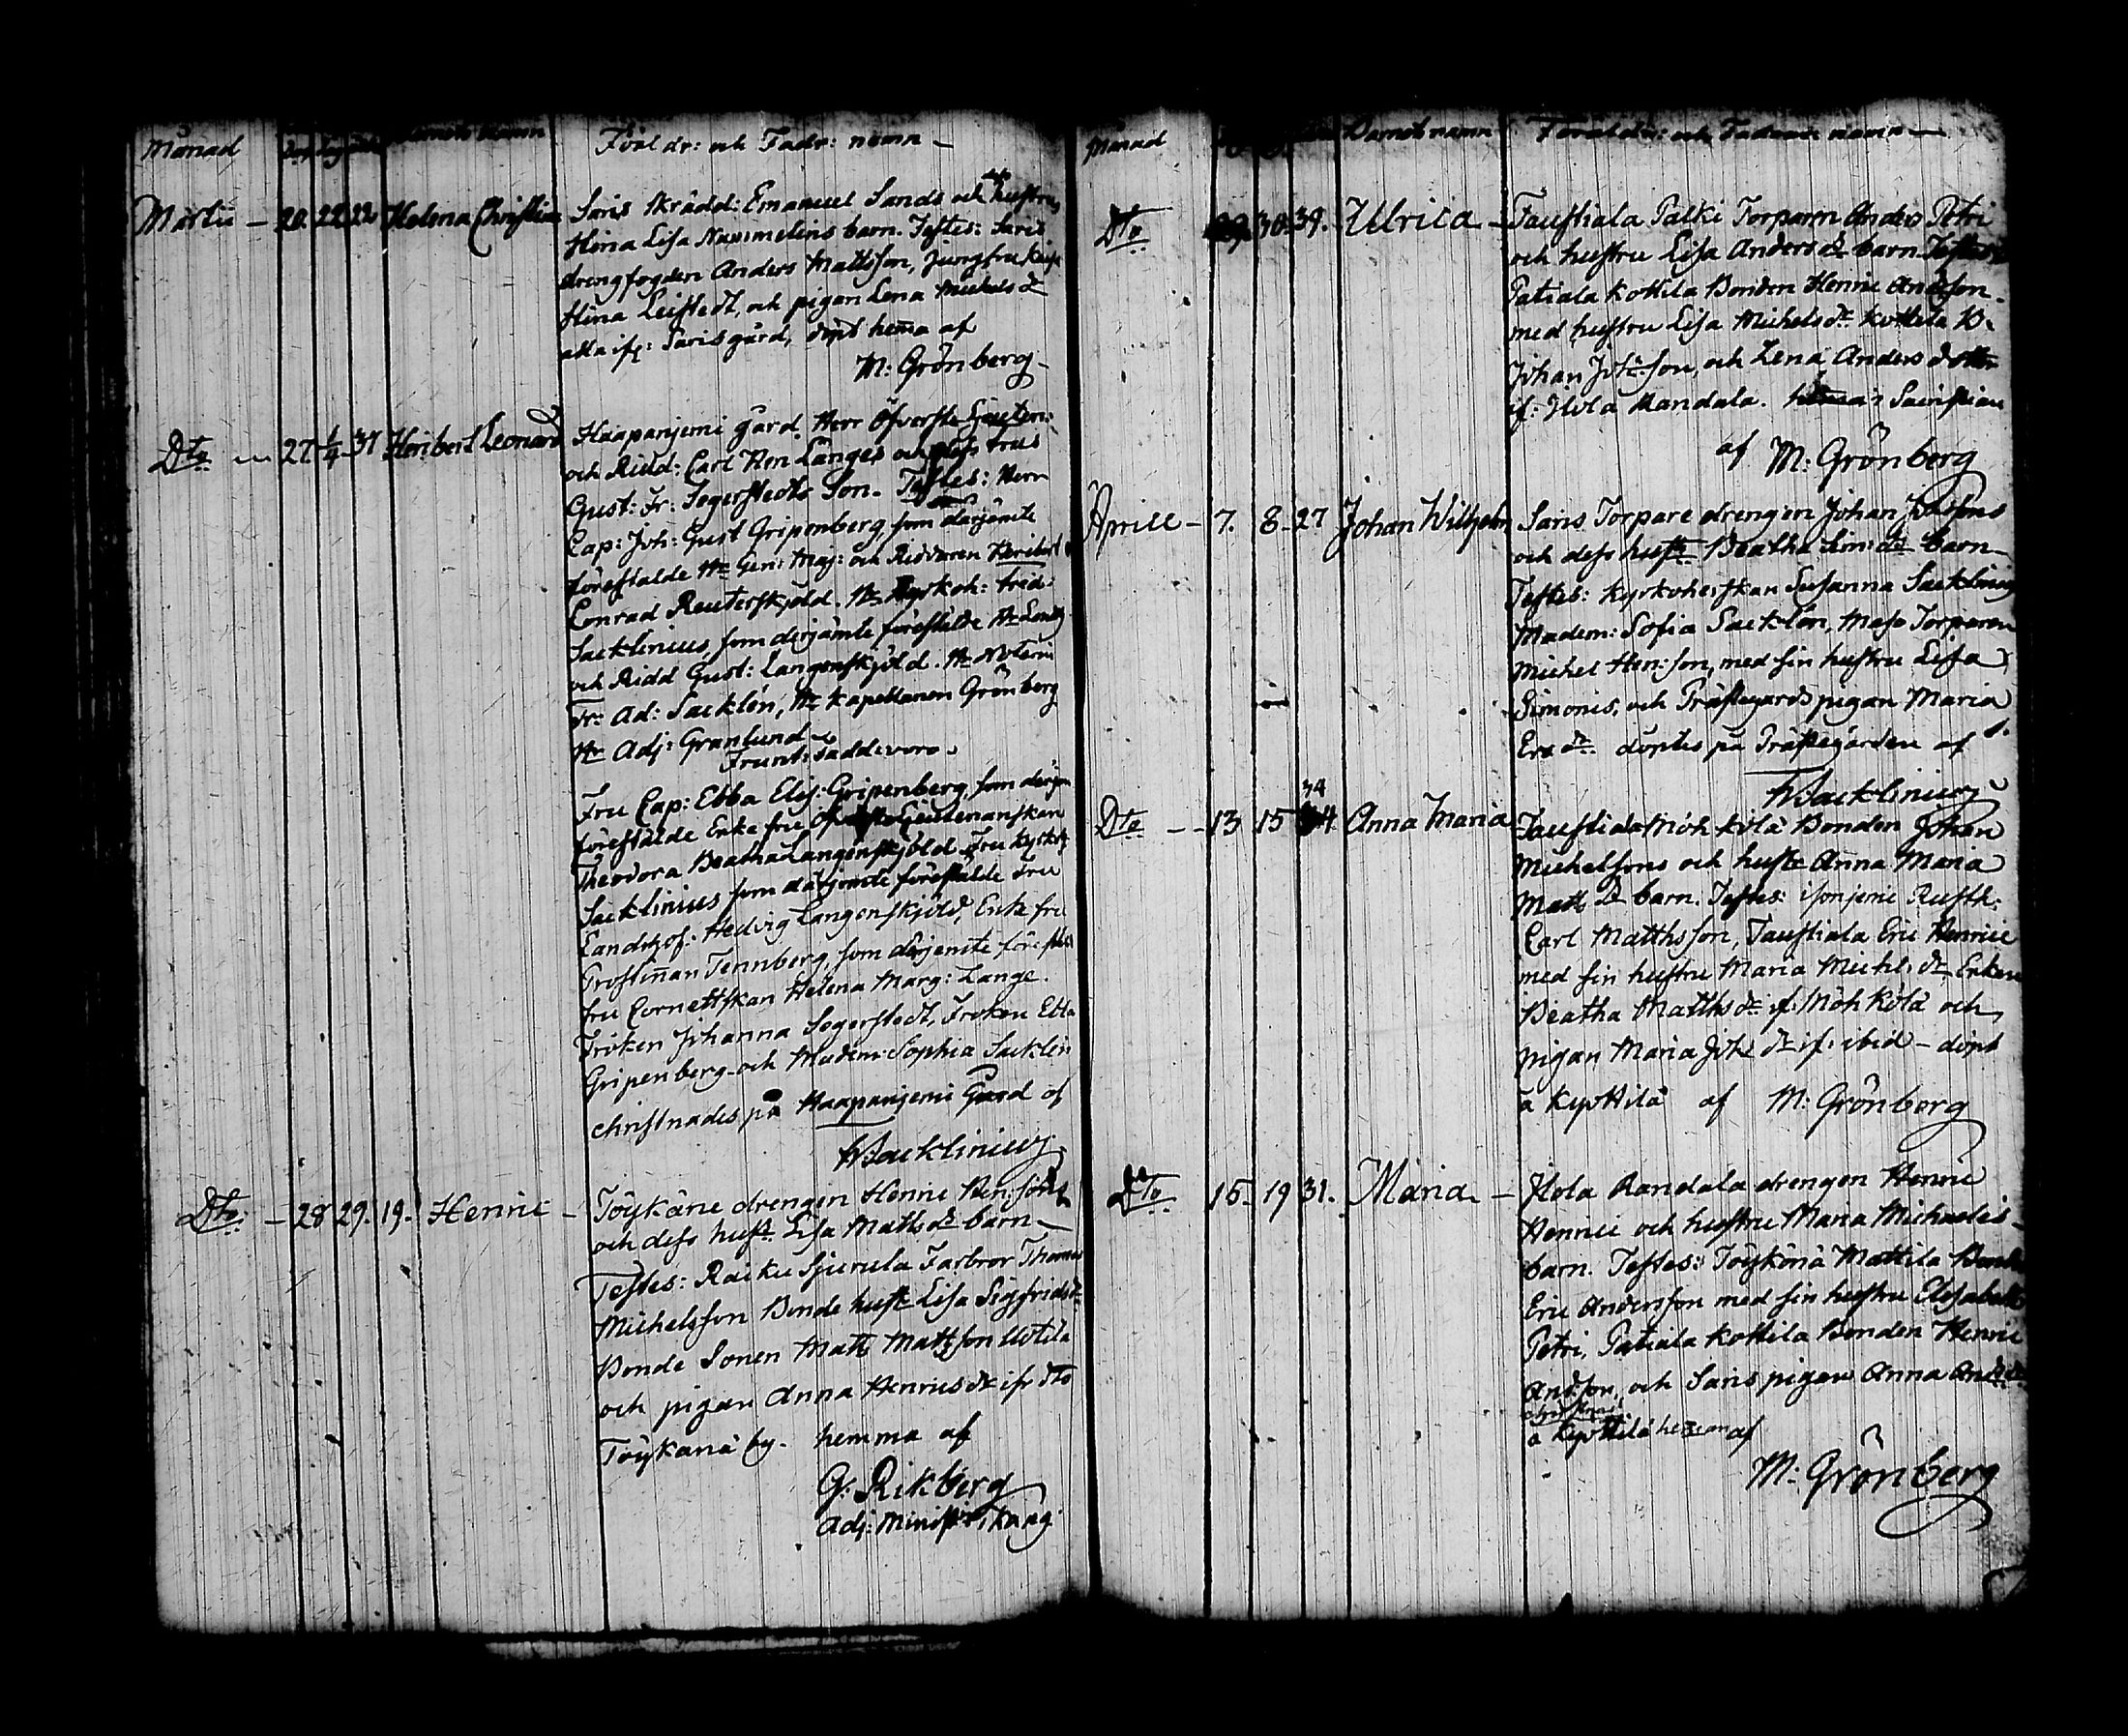 Månad Barnets namn Föräldr: och Fadr: namn —
Martii — 20. 22. 22 Helena Christina Saris Skrädd: Emanuel Sands och dess hustrus
Stina Lisa Nummelins barn. Testes: Saris
drengfogden Anders Mattsson, Jungfru
Stina Leistedt, och pigan Lena Michels dr
alla ifr: Sarisgård, döpt hema af
M: Grönberg
Dto — 27. 1/4 37 Heribert Leonard Haapanjemi gård. Herr Öfverste Lieuten:
och Ridd: Carl Hen Langes och dess frus
Gust: Fr: Segerstedts Son. Testes: Herr
Cap: Joh: Gust Gripenberg, som derjemte
förestälde Hr Gen: Maj: och Riddaren Heribert
Conrad Reuterskjöld. Hr Kyrkoh: Frid:
Sacklinius, som derjämte förestälde Hr Landsh
och Ridd Gust: Langenskjöld. Hr Notarien
Fr: Ad: Sacklén, Hr Kapellanen Grönberg
Hr Adj: Granlund
Frunt: faddr voro.
Fru Cap: Ebba Elis: Gripenberg, som derjem
förestälde Enke fru Lieutenanskan
Theodora Beatha Langenskjöld. Fru Kyrkoh
Sacklinius som därjemte förestälde Fru
Landshöf: Hedvig Langenskjöld, Enke fru
Prostinnan Tennberg, som derjemte förestälde
fru Cornettskan Helena Marg: Lange.
Fröken Johanna Segerstedt, Fröken Ebba
Gripenberg och Madem: Sophia Sacklén
christnades på Haapanjemi Gård af
Sacklinius
Dto — 28 29. 19. Henric — Töykäne drengen Henric Hen: sons
och dess hust: Lisa Matts dr barn —
Testes: Raiku Sjurula Farbror Thomas
Michelsson Bonde hust: Lisa Sigfrids dr
Bonde Sonen Matts Mattsson Uotila
och pigan Anna Henrics dr ifr dto
Töykänä by. hemma af
G: Rikberg
Adj: Minist: i Kang:
Månad Barnets namn Föräldr: och Faddrar namn —
Dto 29. 30. 39. Ulrica — Taustiala Palki Torparn Anders Petri
och hustru Lisa Anders dr barn. Testes
Patiala Kottila Bonden Henric Andsson
med hustru Lisa Michels dr Kottila
Johan Joh:son, och Lena Anders dotter
if: Ilola Randala. i Sacristian
af M: Grönberg
Aprill — 7. 8 — 27 Johan Wilhelm Saris Torpare drengen Johan Johssons
och dess hustr: Beatha Sim: dr barn —
Testes: Kyrkoherskan Susanna Sacklinius
Madem: Sofia Sacklén, Torparen
Michel Hen:son, med sin hustru Lisa
Simonis, och Prästegårds pigan Maria
Ers dr. döptes på Prästegården af
Sacklinius
Dto — 13 15 34 Anna Maria Taustiala Möhkölä Bonden Johan
Michelsons och hustr Anna Maria
Matts dr barn. Testes: Isonjemi Rusth:
Carl Matthsson, Taustiala Eric Henrici
med sin hustru Maria Michl: dr Enkan
Beatha Matths dr if: Möhkölä och
pigan Maria Johs dr if: ibid — döpt
å Kyöttilä af M: Grönberg
Dto 15. 19 31. Maria — Ilola Randala drengen Henric
Henrici och hustru Maria Michaelis
barn. Testes: Töykänä Mattila Bonden
Eric Andersson med sin hustru Elisabeth
Petri, Patiala Kottila Bonden Henric
Andson, och Saris pigan Anna And: dr
å Kyöttilä af
M: Grönberg